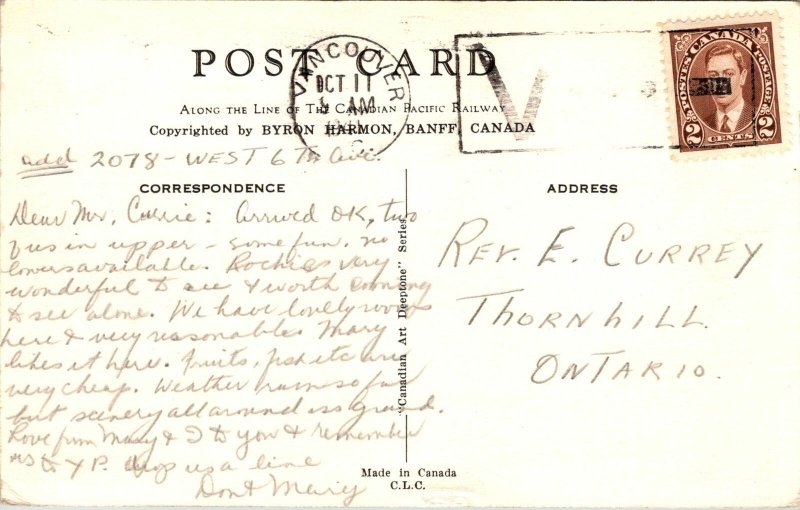 POST CARD
VANCOUVER
OCT 11
AM
V
POSTES CANADA POSTAGE
2 CENTS 2
ALONG THE LINE OF THE CANADIAN PACIFIC RAILWAY
Copyrighted by BYRON HARMON, BANFF, CANADA
add 2078 - WEST 6TH Ave.
CORRESPONDENCE
ADDRESS
Dear Mr. Currie: Arrived OK, two
of us in upper - some fun. no
lowers available. Rockies very
wonderful to see & worth coming
to see alone. We have lovely rooms
here & very reasonable. Mary
likes it here. Fruits, fish etc are
very cheap. Weather so far
but scenery all around is grand.
Love from Mary & I to you & remember
us to Y P. drop us a line
Don & Mary
"Canadian Art Deeptone" Series
REV. E. CURREY
THORNHILL
ONTARIO.
Made in Canada
C.L.C.